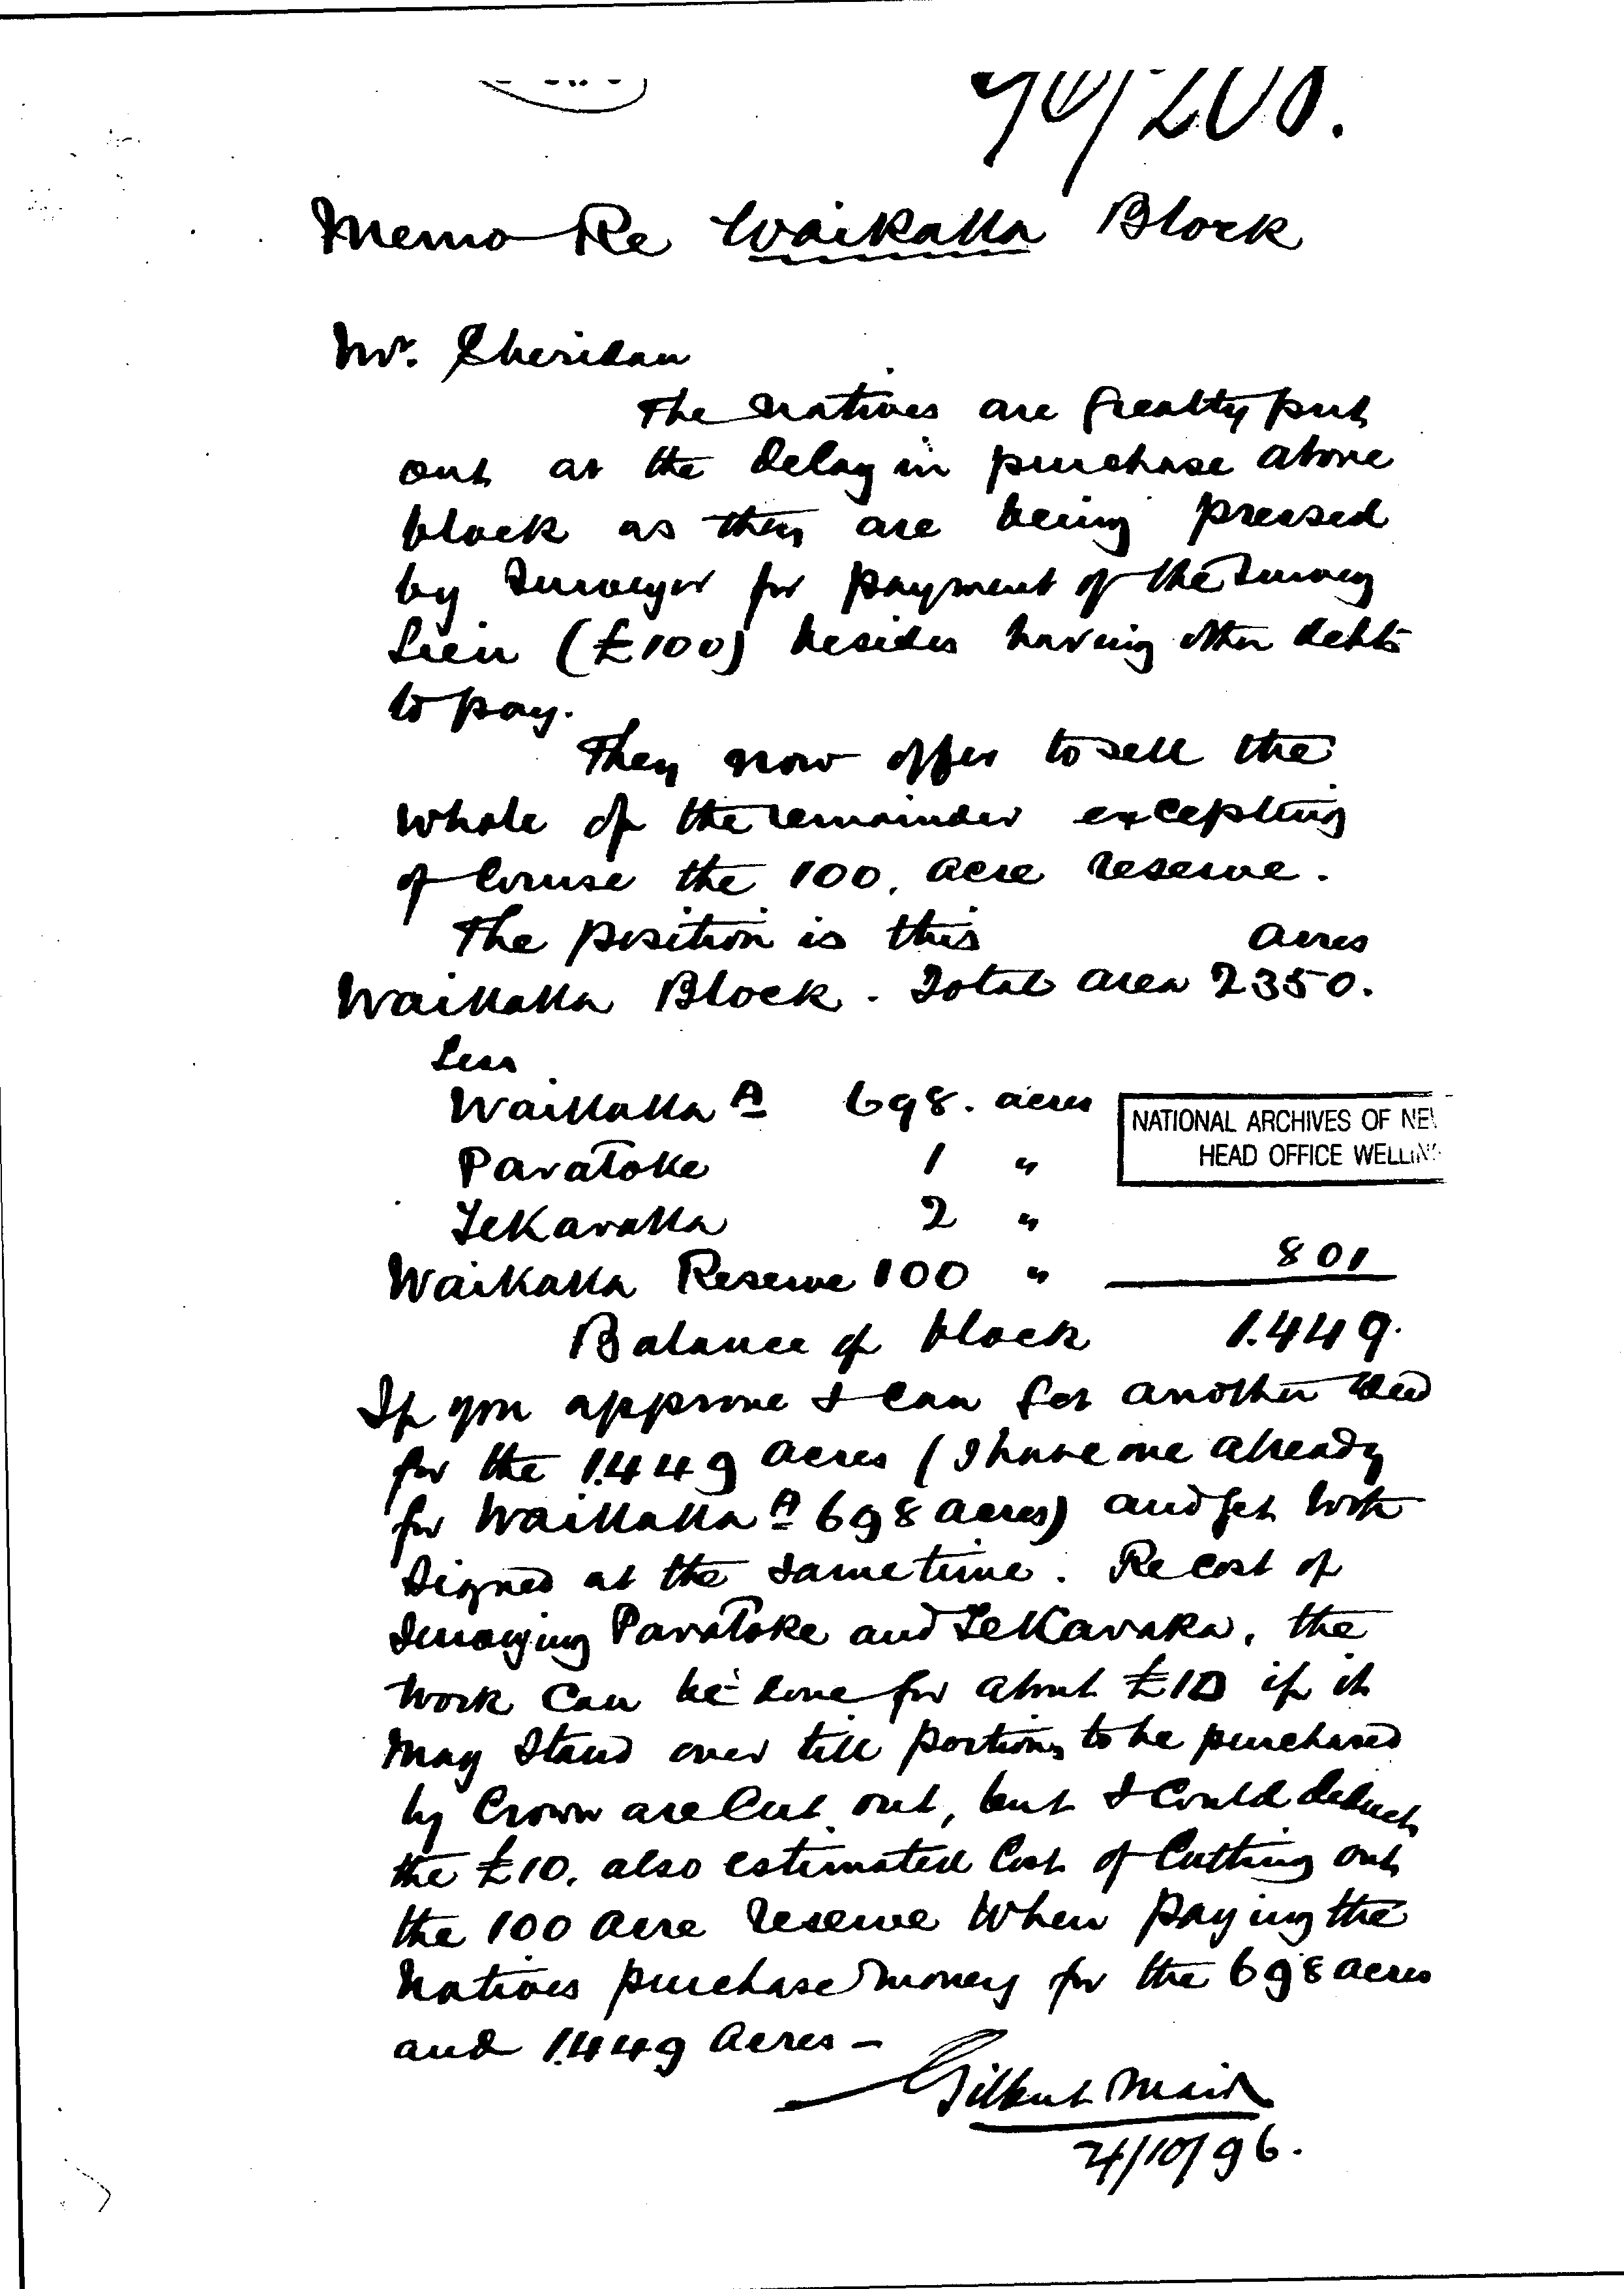 Memo Re Waikaka Block
Mr. Sheridan
The Natives are greatly put
out at the delay in purchase above
block as they are being pressed
by Surveyor for payment of the Survey
Lien (£100) besides having other debts
to pay.
They now offer to sell the
whole of the remainder excepting
of course the 100. acre reserve.
The position is this acres
Waikaka Block. Total area 2350.
Less
Waikaka A 698. acres
NATIONAL ARCHIVES OF NEW
Paratoke 1 "
HEAD OFFICE WELLIN
Te Karaka 2 "
Waikaka Reserve 100 " 801
Balance of block 1.449.
If you approve I can get another deed
for the 1.449 acres (I have one already
for Waikaka A 698 acres) and get both
signed at the same time. Re cost of
surveying Paratoke and Te Karaka, the
work can be done for about £10 if it
may stand over till portions to be purchased
by Crown are cut out, but I could deduct
the £10. also estimated cost of cutting out
the 100 acre reserve when paying the
Natives purchase money for the 698 acres
and 1.449 acres —
Gilbert Mair
/10/96.